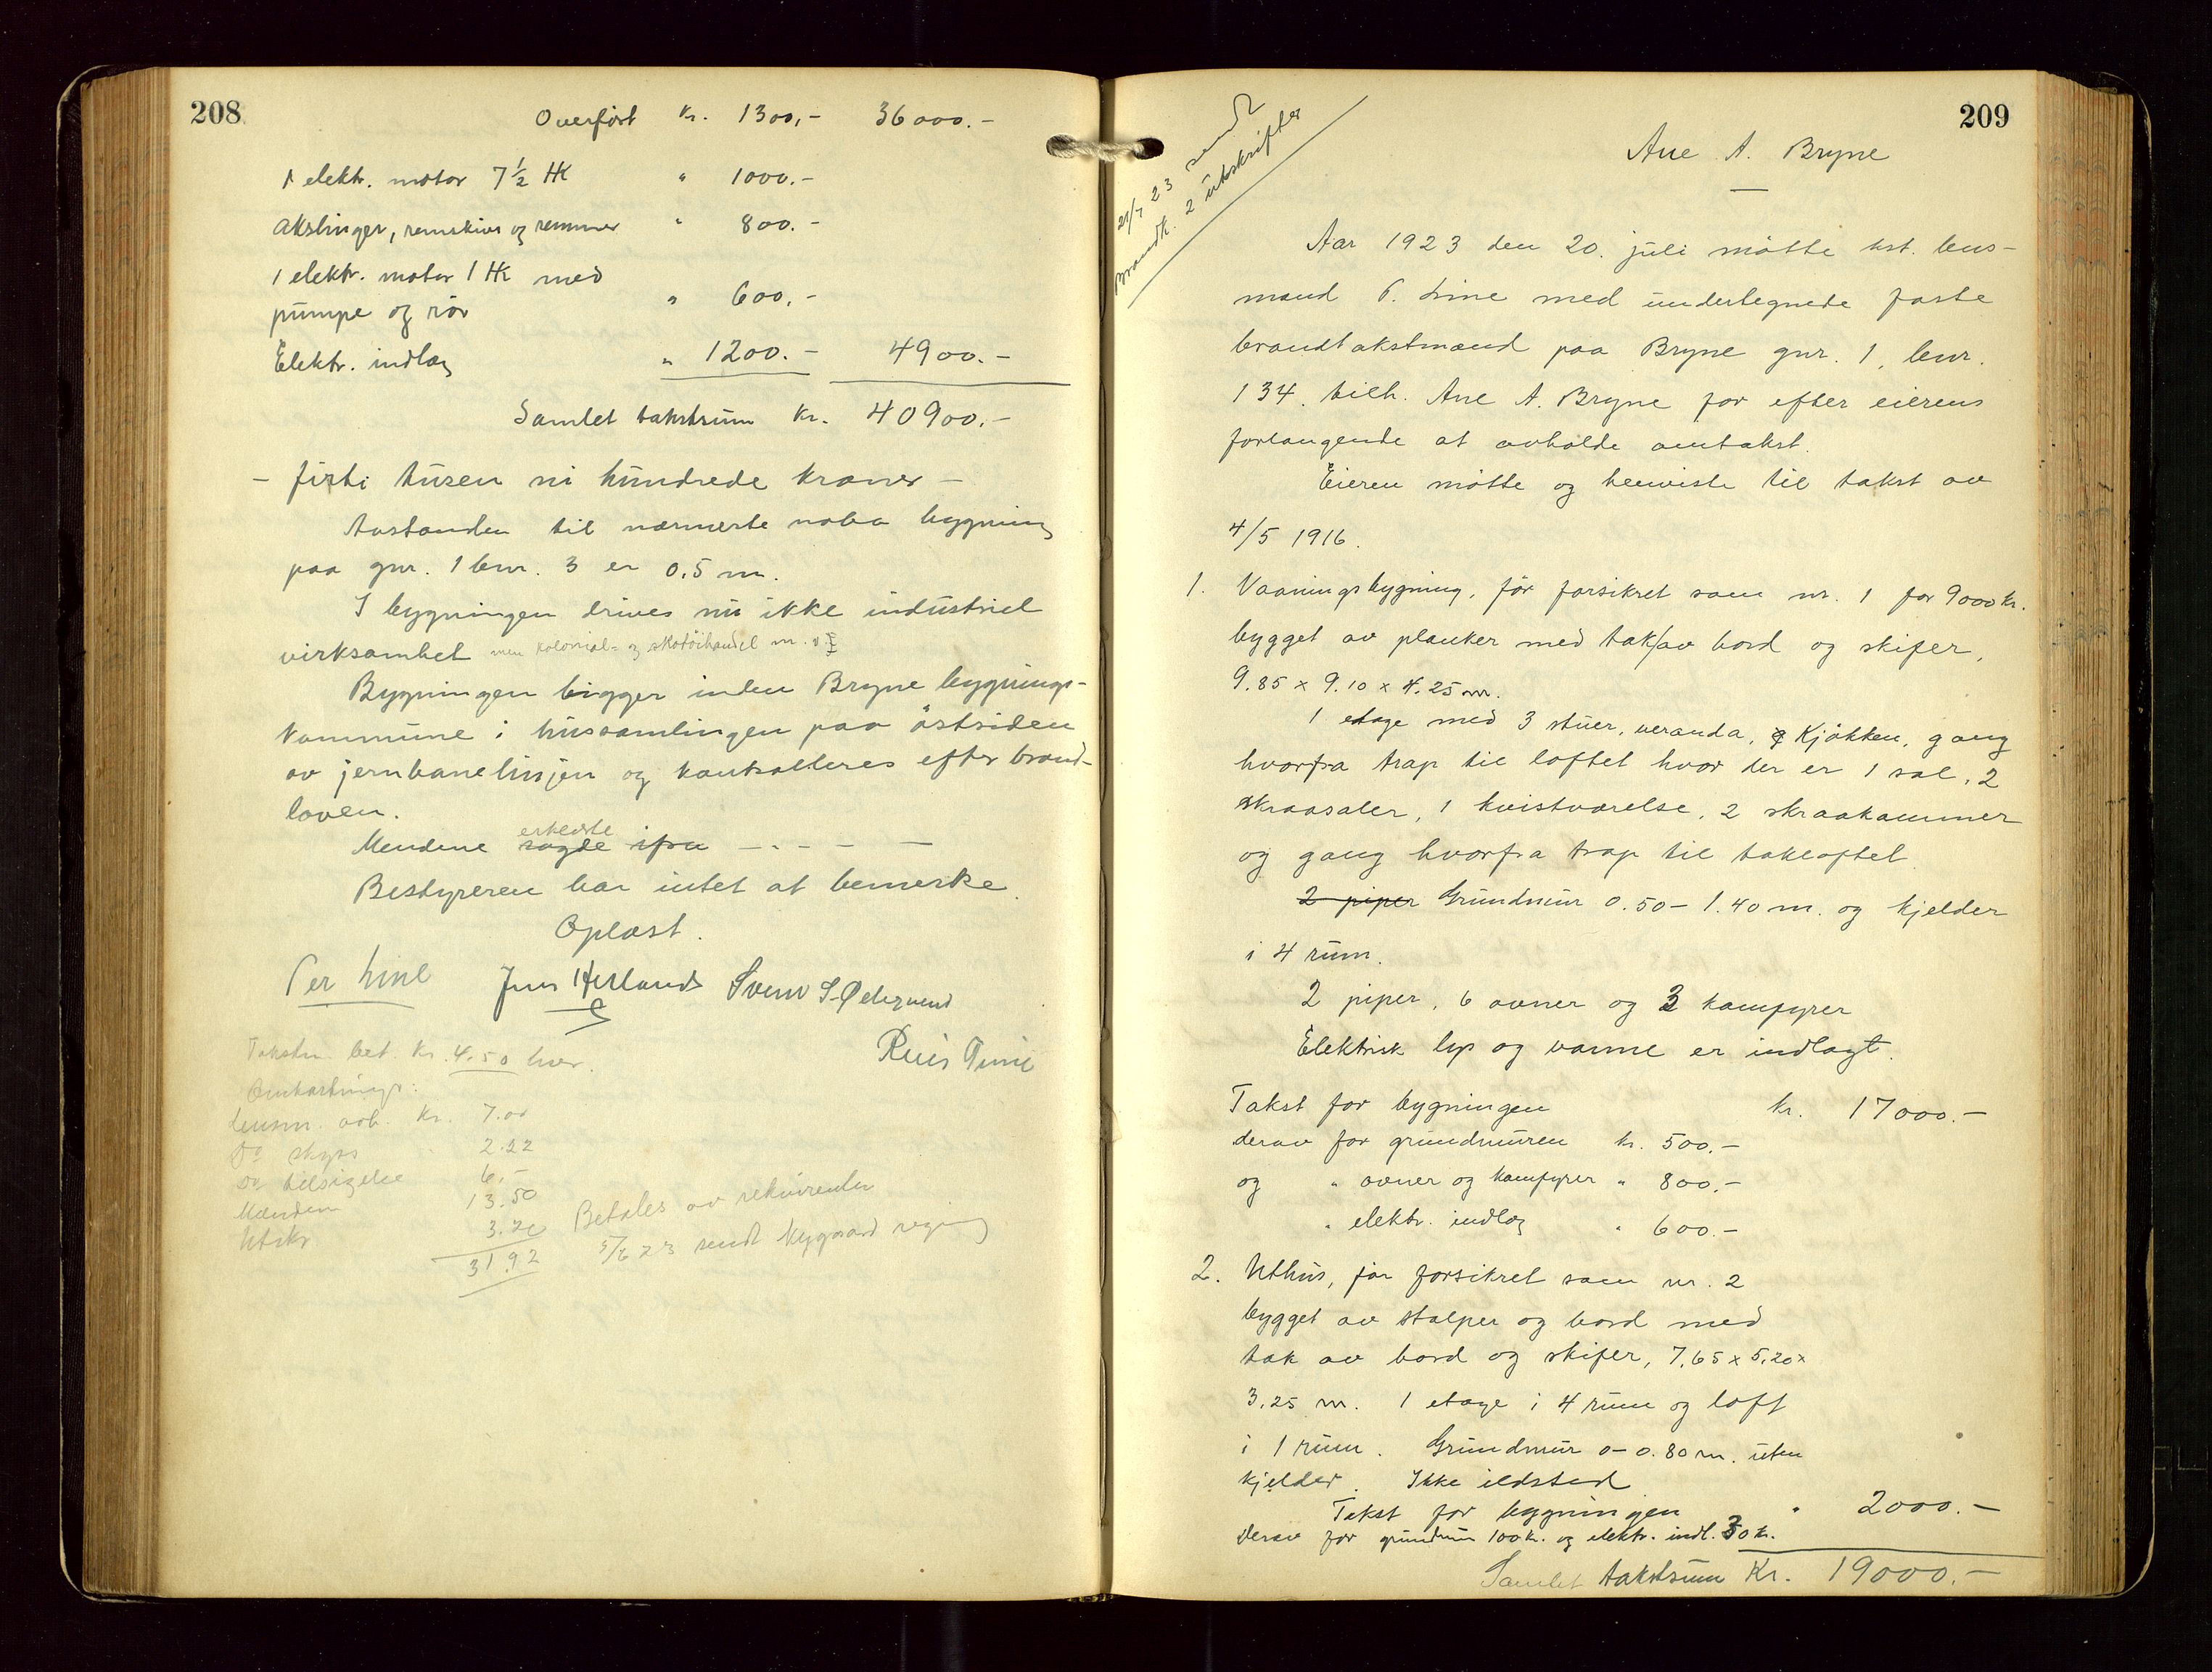 208
Overført Kr. 1300,- 36000.-
1 elektr. motor 7½ HK " 1000.-
Akslinger, remskiver og remmer " 800.-
1 elektr. motor 1 HK med
pumpe og rør " 600.-
Elektr. indlæg " 1200.- 4900.-
Samlet takstsum Kr. 40900.-
- firti tusen ni hundrede kroner -
Avstanden til nærmeste nabo bygning
paa gnr. 1 bnr. 3 er 0.5 m.
I bygningen drives nu ikke industriel
virksamhet men kolonial- og skotøihandel m. v.
Bygningen ligger inden Bryne bygnings-
kommune i hussamlingen paa østsiden
av jernbanelinjen og kontrolleres efter brand-
loven.
erklærte
Mendene sagde ifra - . - - -
Bestyreren har intet at bemerke.
Oplæst.
Per Line Jens Herland Svenn S.
Takstm. bet. Kr. 4.50 hver.
Omkostninger:
Lensm. arb. Kr. 7.00
Do skyss 2.22
Do tilsigelse 6,-
Mænden 13.50
Utskr 3.20
31.92
Betales av rekvirenten
5/6 23 sendt Nygaard regning
209
21/7 23 sendt
Brandk. 2 utskrifter
Ane A. Bryne
Aar 1923 den 20. juli møtte kst. lens-
mand P. Line med undertegnede faste
brandtakstmænd paa Bryne gnr. 1, bnr.
134. tilh. Ane A. Bryne for efter eierens
forlangende at avholde omtakst.
Eieren møtte og henviste til takst av
4/5 1916.
1. Vaaningsbygning, før forsikret som nr. 1 for 9000 kr.
bygget av planker med tak av bord og skifer,
9.85 x 9.10 x 4.25 m.
1 etage med 3 stuer, veranda, kjøkken, gang
hvorfra trap til loftet hvor der er 1 sal, 2
skraasaler, 1 kvistværelse, 2 skraakammer
og gang hvorfra trap til takloftet.
2 piper Grundmur 0.50 - 1.40 m. og kjelder
i 4 rum.
2 piper, 6 ovner og 3 komfyrer
Elektrisk lys og varme er indlagt.
Takst for bygningen kr. 17000.-
derav for grundmuren kr. 500.-
og " ovner og komfyrer " 800.-
" elektr. indlæg " 600.-
2. Uthus, før forsikret som nr. 2
bygget av stolper og bord med
tak av bord og skifer, 7.65 x 5.20 x
3.25 m. 1 etage i 4 rum og loft
i 1 rum. Grundmur 0 - 0.80 m. uten
kjelder. Ikke ildsted
Takst for bygningen " 2000.-
Derav for grundmur 100 kr. og elektr. indl. 30 kr.
Samlet takstsum Kr. 19000.-